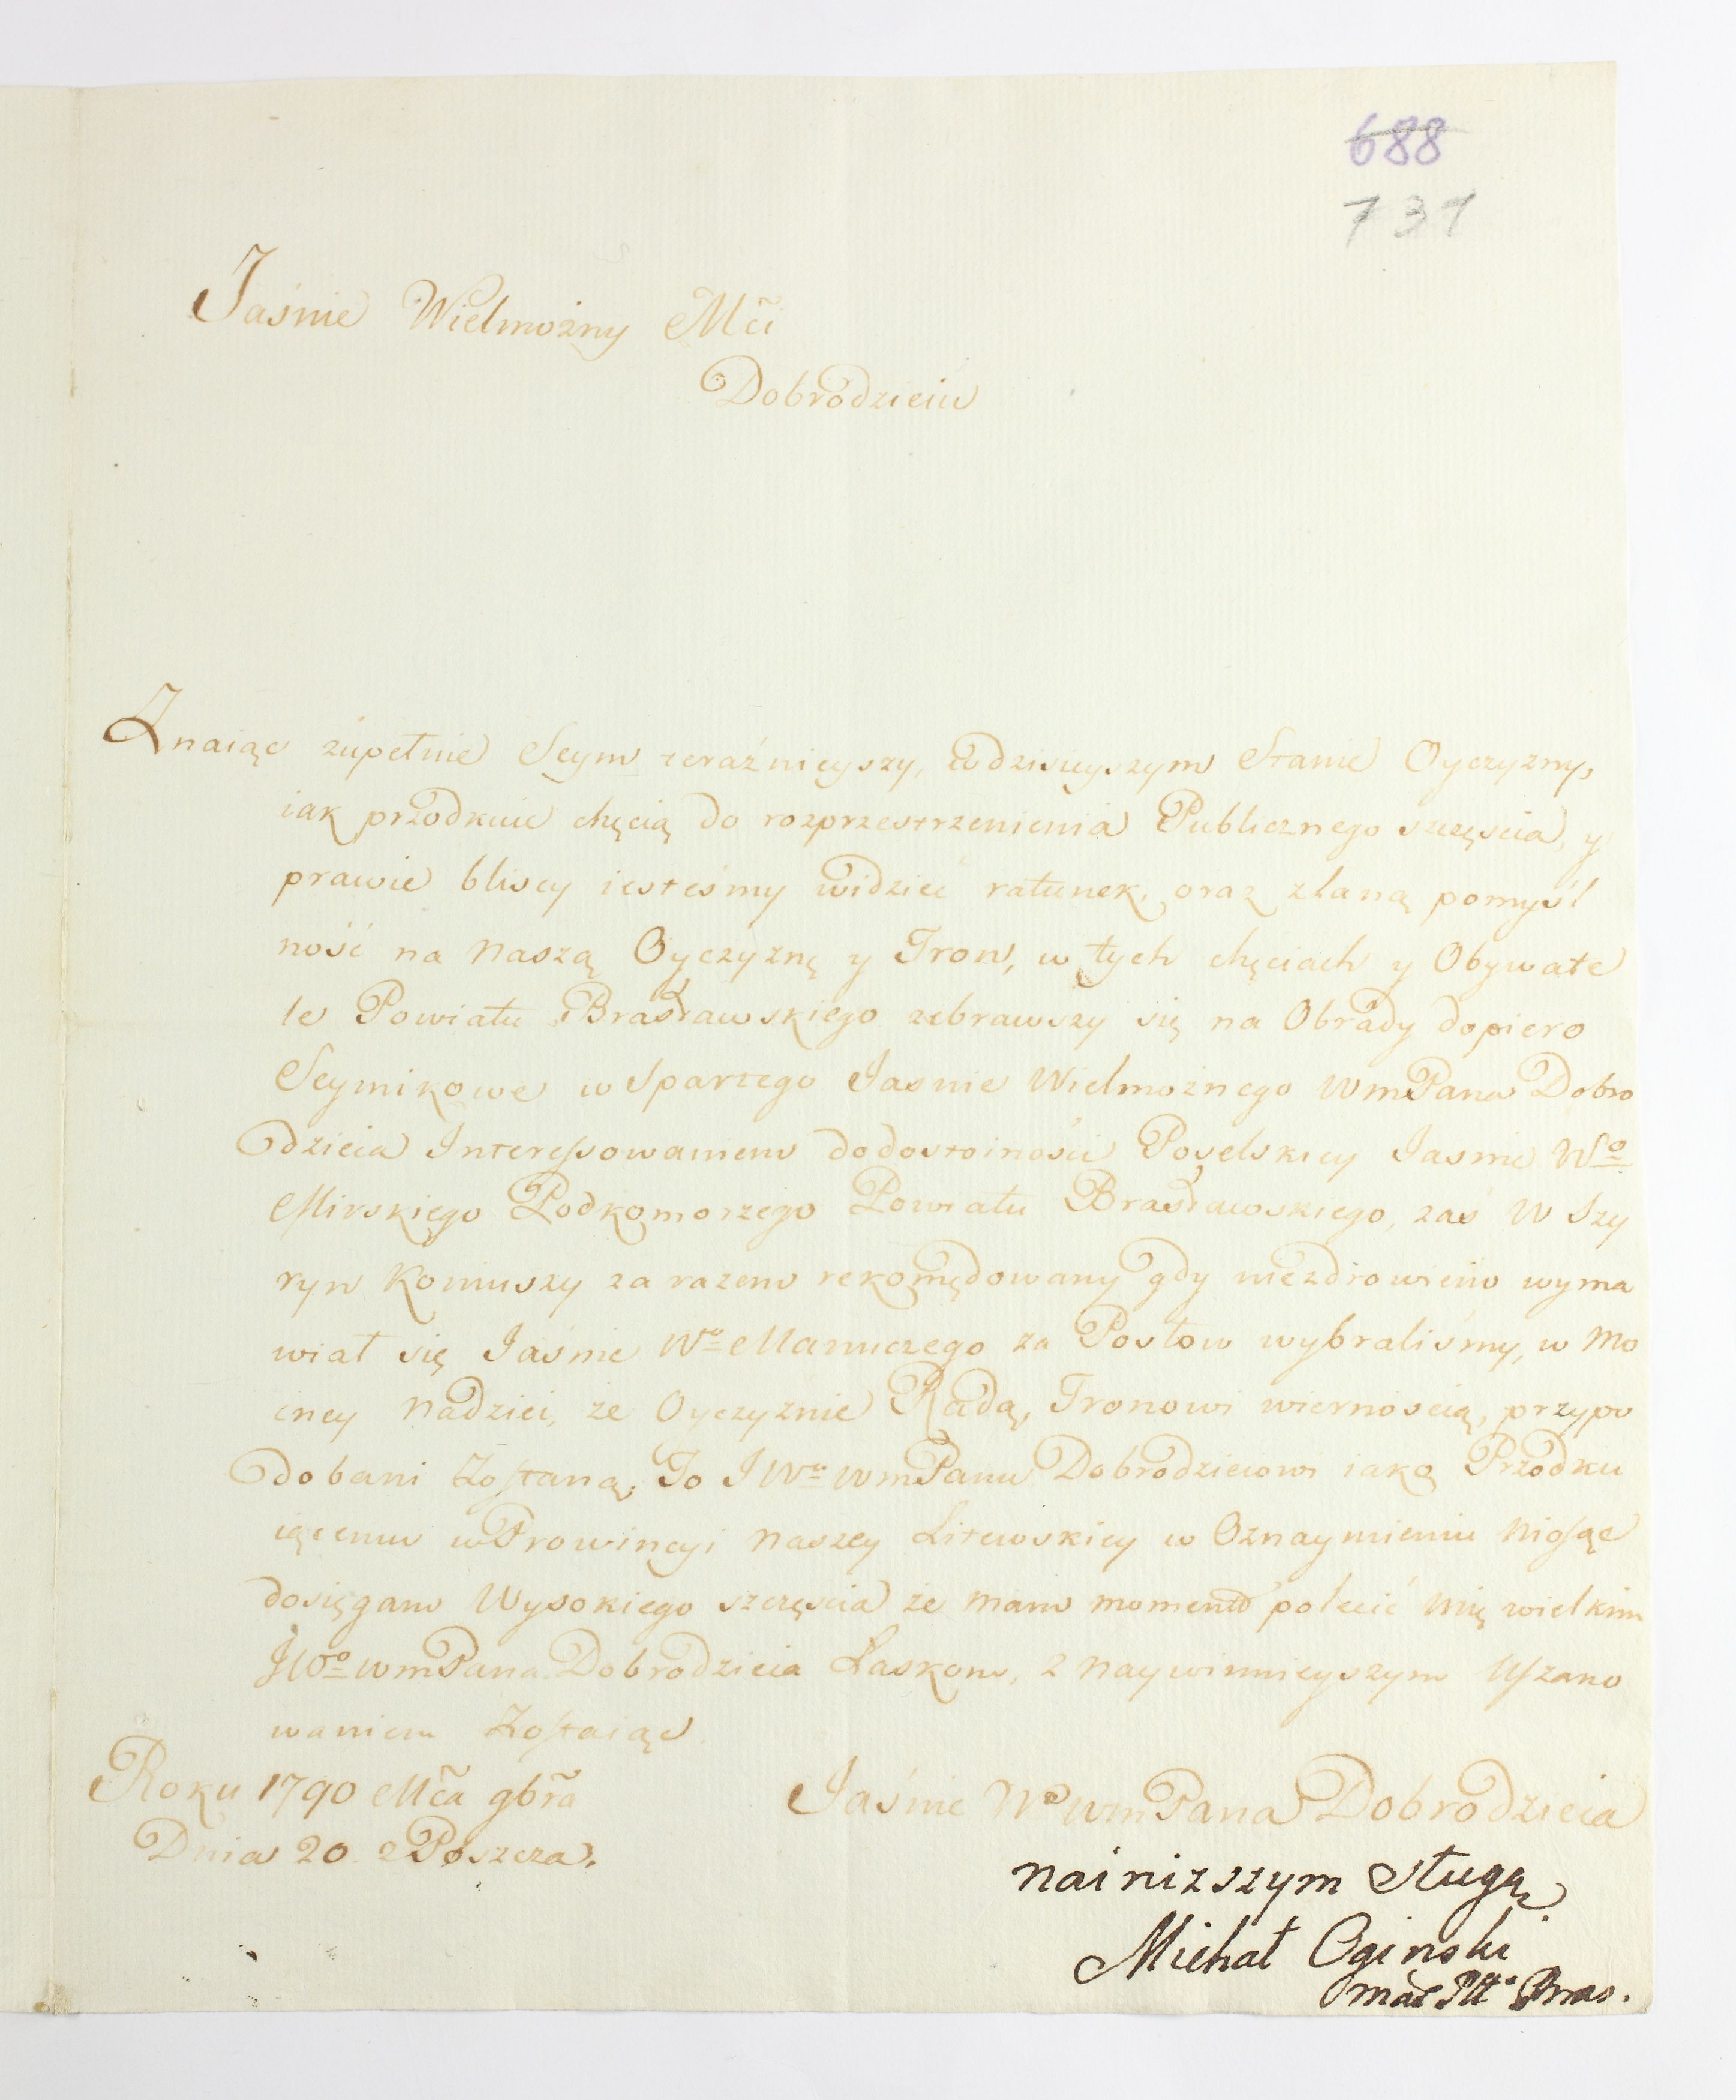 688
731
Jaśnie Wielmożny Mći
Dobrodzieiu
Znaiąc zupełnie Seym teraźnieyszy, w dzisieyszym Stanie Oyczyzny,
iak przodkuie chęcią do rozprzestrzenienia Publicznego szczęscia, y
prawie bliscy iesteśmy widzieć ratunek, oraz zlaną pomyśl
ność na Naszą Oyczyznę y Tron, w tych chęciach y Obywate
le Powiatu Brasławskiego zebrawszy się na Obrady dopiero
Seymikowe wspartego Jasnie Wielmożnego WmPana Dobro
dzieia Interessowaniem do dostoiności Poselskiey Jasnie Wo
Mirskiego Podkomorzego Powiatu Brasławskiego, zaś W Szy
ryn Koniuszy za razem rekomędowany gdy niezdrowiem wyma
wiał się Jaśnie Wo Manuczego za Posłow wybraliśmy, w Mo
cney Nadziei, że Oyczyznie Radą, Tronowi wiernoscią, przypo
dobani Zostaną, To J Wo WmPanu Dobrodzieiowi iako Przodku
iącemu w Prowincyi Naszey Litewskiey w Oznaymieniu Niosąc
dosięgam Wysokiego szczęscia że mam moment polecić mię wielkim
JWo WmPana Dobrodzieia Łaskom, z Naywinnieyszym Uszano
waniem Zostaiąc
Roku 1790 Mča 9bra
Dnia 20 z Poszcza.
Jaśnie Wo WmPana Dobrodzieia
nainizszym sługą
Michał Oginski
Mar Ptt Bras.